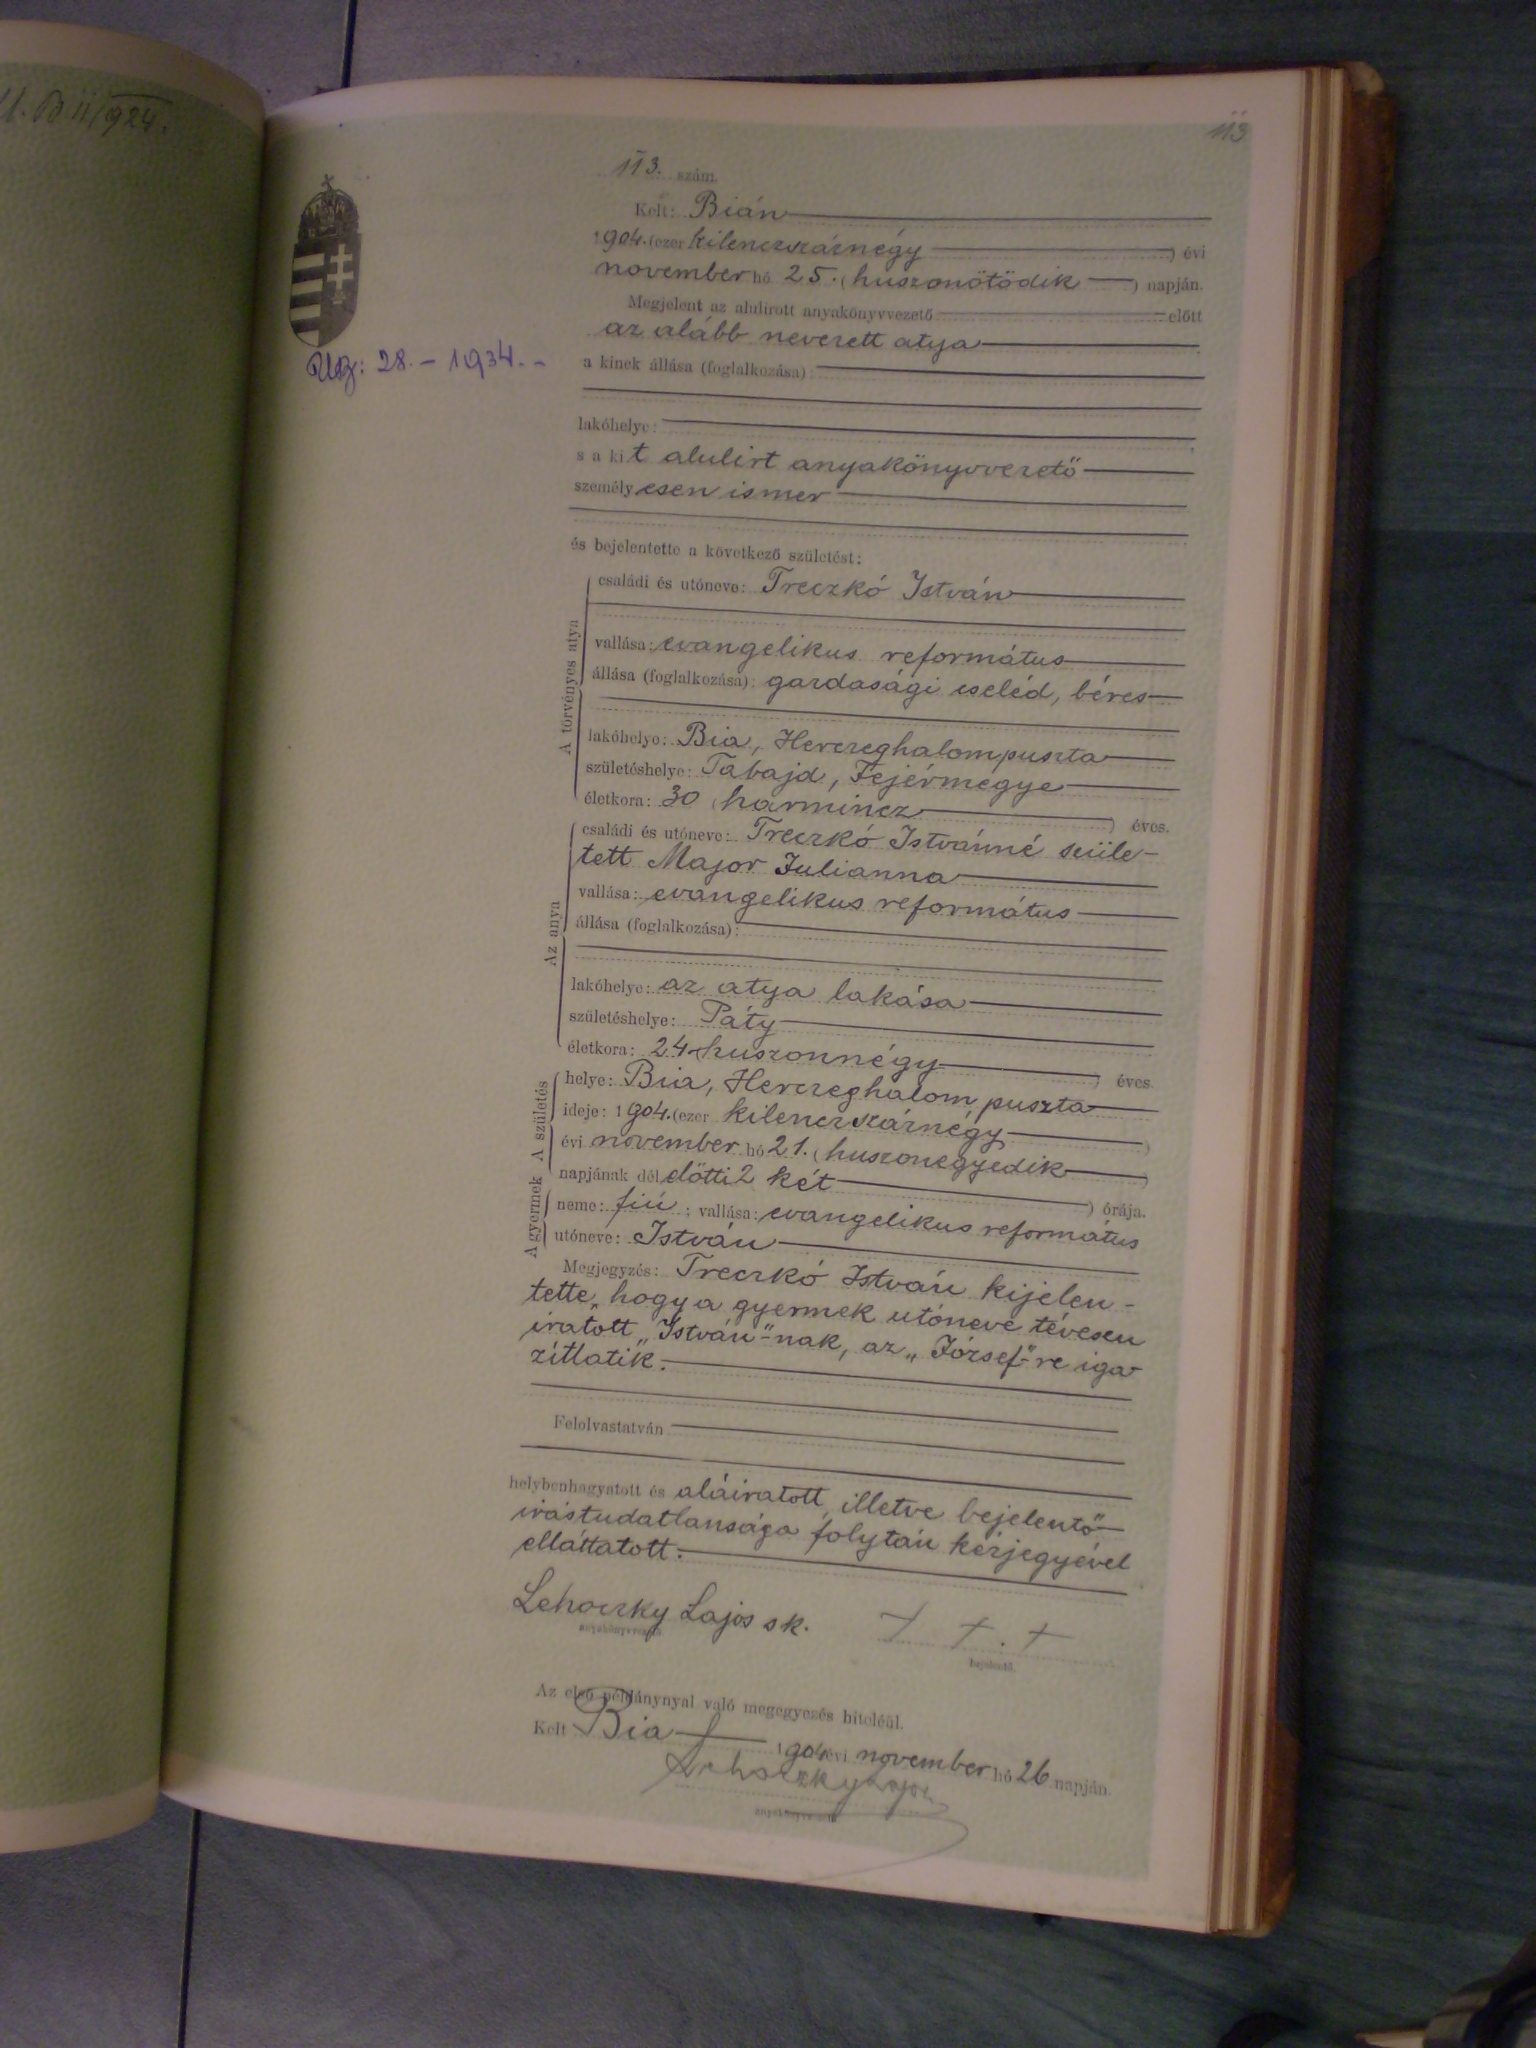 113
113. szám.
Kelt: Bián
1904. (ezer kilenczszáznégy) évi
november hó 25. (huszonötödik) napján.
Megjelent az alulirott anyakönyvvezető előtt
az alább nevezett atya
Utz: 28. - 1934. -
a kinek állása (foglalkozása):
lakóhelye:
s a kit alulirt anyakönyvvezető
személyesen ismer
és bejelentette a következő születést:
A törvényes atya
családi és utóneve: Treczkó István
vallása: evangelikus református
állása (foglalkozása): gazdasági cseléd, béres
lakóhelye: Bia, Herczeghalompuszta
születéshelye: Tabajd, Fejérmegye
életkora: 30 (harmincz) éves.
Az anya
családi és utóneve: Treczkó Istvánné szüle-
tett Major Julianna
vallása: evangelikus református
állása (foglalkozása):
lakóhelye: az atya lakása
születéshelye: Páty
életkora: 24 huszonnégy) éves
A születés
helye: Bia, Herczeghalom puszta
ideje: 1904. (ezer kilenczszáznégy)
évi november hó 21. (huszonegyedik)
napjának délelőtti 2 két) órája.
A gyermek
neme: fiú; vallása: evangelikus református
utóneve: István
Megjegyzés: Treczkó István kijelen-
tette, hogy a gyermek utóneve tévesen
iratott „István"-nak, az „József"-re iga
zíttatik.
Felolvastatván
helybenhagyatott és aláiratott, illetve bejelentő
irástudatlansága folytán kézjegyével
elláttatott.
Lehoczky Lajos sk.
anyakönyvvezető
+ + . +
bejelentő.
Az első példánynyal való megegyezés hiteléül.
Kelt Bia 1904 évi november hó 26 napján.
Lehoczky Lajos
anyakönyvvezető